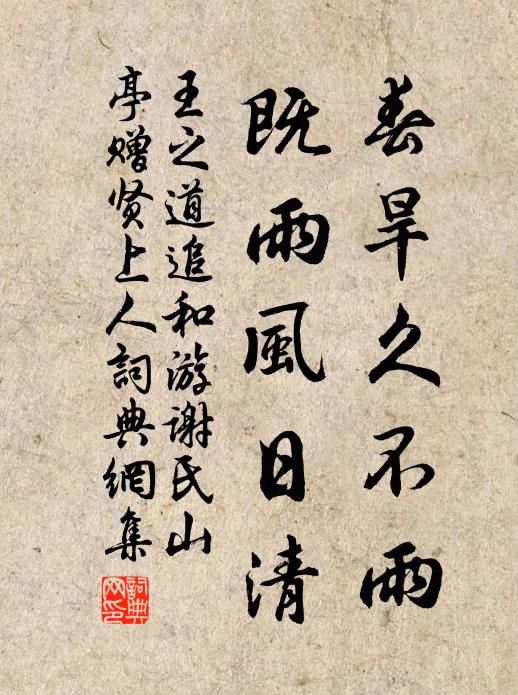 春旱久不雨
既雨風日清
王之道追和游谢氏山
亭赠贤上人詞典網集
詞典網印